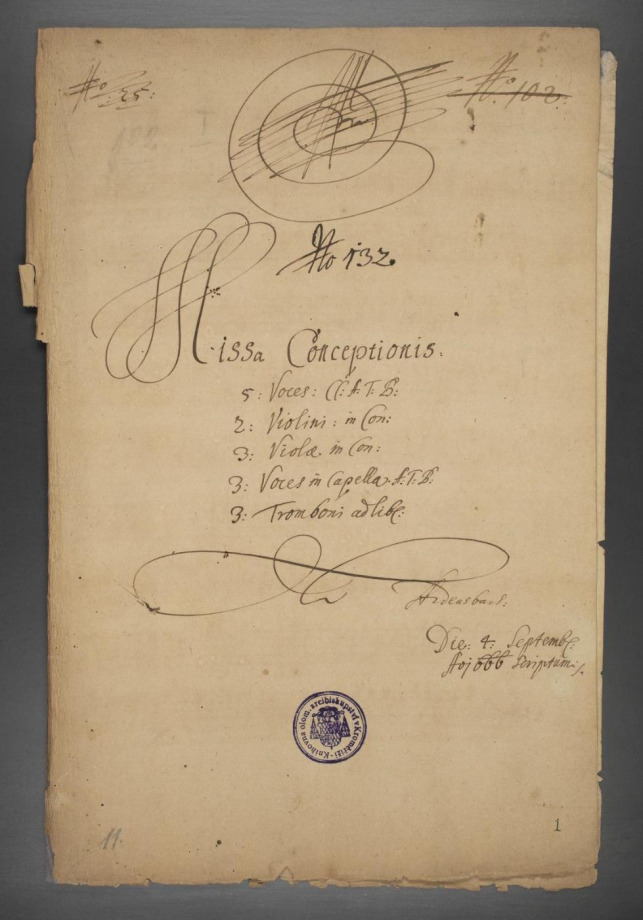 No: 25:
No. 102.
No 132.
Missa Conceptionis.
5: Voces: CC: A: T: B:
2: Violini: in Con:
3: Violæ. in Con:
3: Voces in Capella. A: T: B:
3: Tromboni ad lib:
Die: 4: Septemb:
Aoj 666 scriptum
Knihovna olom. arcibiskupství v Kroměříži
11.
1